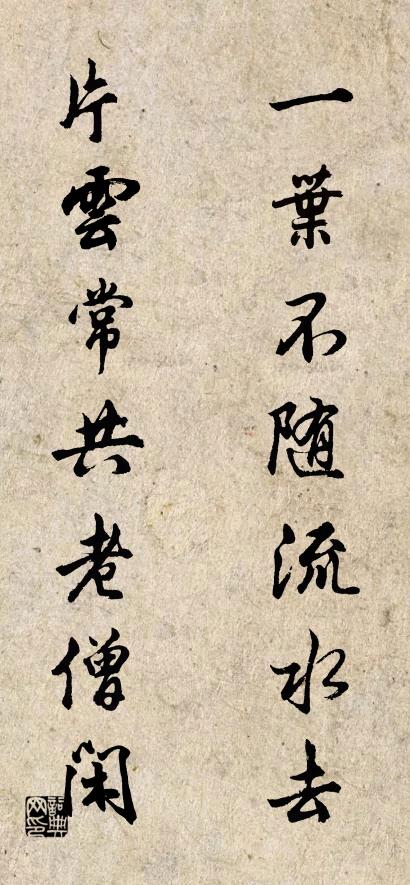 一葉不随流水去
片雲常共老僧閑